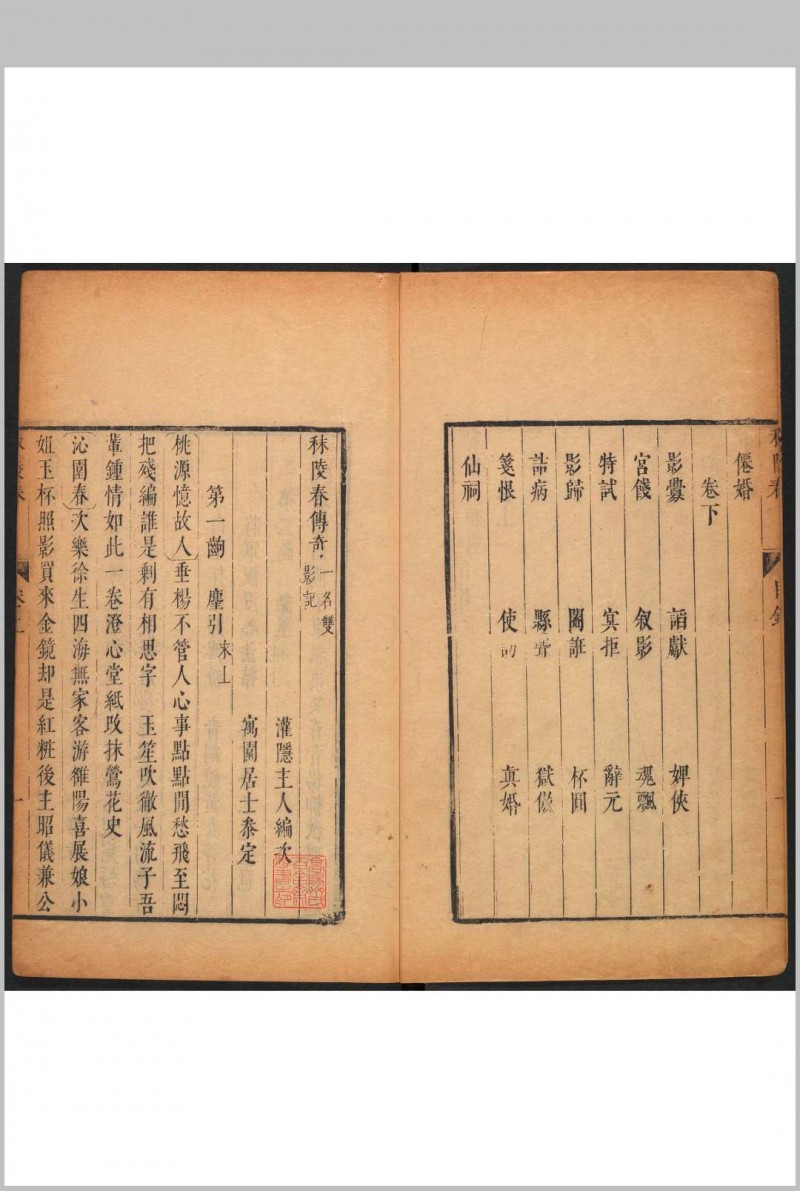 僊婚
卷下
影釁 詣獻 婢俠
宮餞 叙影 魂飄
特試 㝠拒 辭元
影歸 閙誑 杯圓
詰病 縣 獄傲
箋恨 使 真婚
仙祠
秣陵春
目錄
秣陵春傳奇
一名雙影記
灌隱主人編次
寓園居士叅定
第一齣 塵引 末上
桃源憶故人垂楊不管人心事點點閒愁飛至悶
把殘編誰是剩有相思字 玉笙吹徹風流子吾
輩鍾情如此一卷澄心堂紙攺抹鶯花史
沁園春次樂徐生四海無家客游雒陽喜展娘小
姐玉杯照影買來金鏡却是紅粧後主昭儀兼公
一